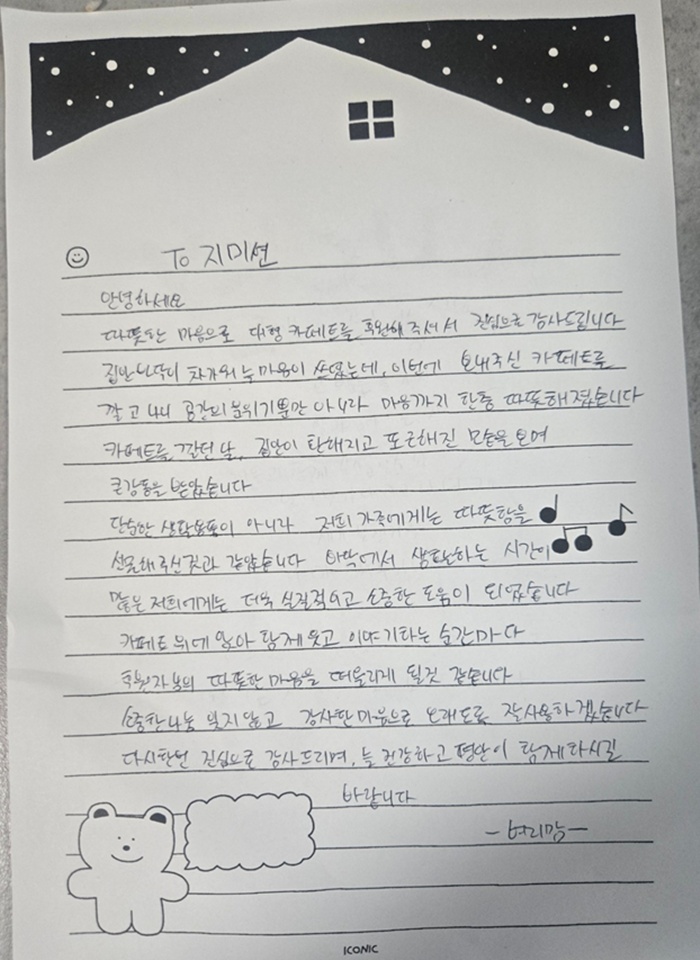 To 지미션
안녕하세요
따뜻한 마음으로 대형 카페트를 후원해 주셔서 진심으로 감사드립니다
집안 바닥이 차가워 늘 마음이 쓰였는데, 이번에 보내주신 카페트를
깔고 나니 공간의 분위기뿐만 아니라 마음까지 한층 따뜻해졌습니다
카페트를 깔던 날, 집안이 환해지고 포근해진 모습을 보며
큰감동을 받았습니다
단순한 생활용품이 아니라 저희 가족에게는 따뜻함을
선물해주신것과 같았습니다 바닥에서 생활하는 시간이
많은 저희에게는 더욱 실질적이고 소중한 도움이 되었습니다
카페트 위에 앉아 함께 웃고 이야기하는 순간마다
후원자분의 따뜻한 마음을 떠올리게 될것 같습니다
소중한나눔 잊지않고 감사한마음으로 오래도록 잘사용하겠습니다
다시한번 진심으로 감사드리며, 늘 건강하고 평안이 함께하시길
바랍니다
ICONIC